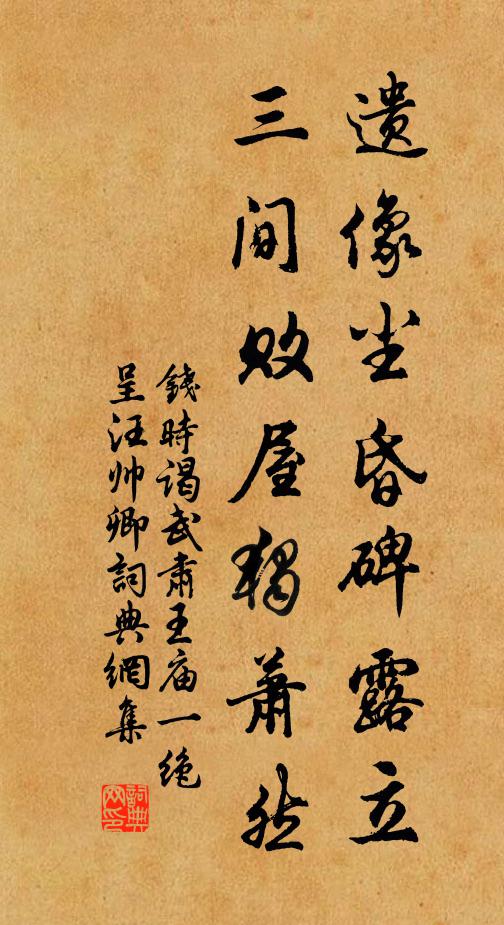 遗像尘昏碑露立
三间败屋独萧然
錢時谒武肃王庙一绝
呈汪帅卿詞典網集
詞典网印